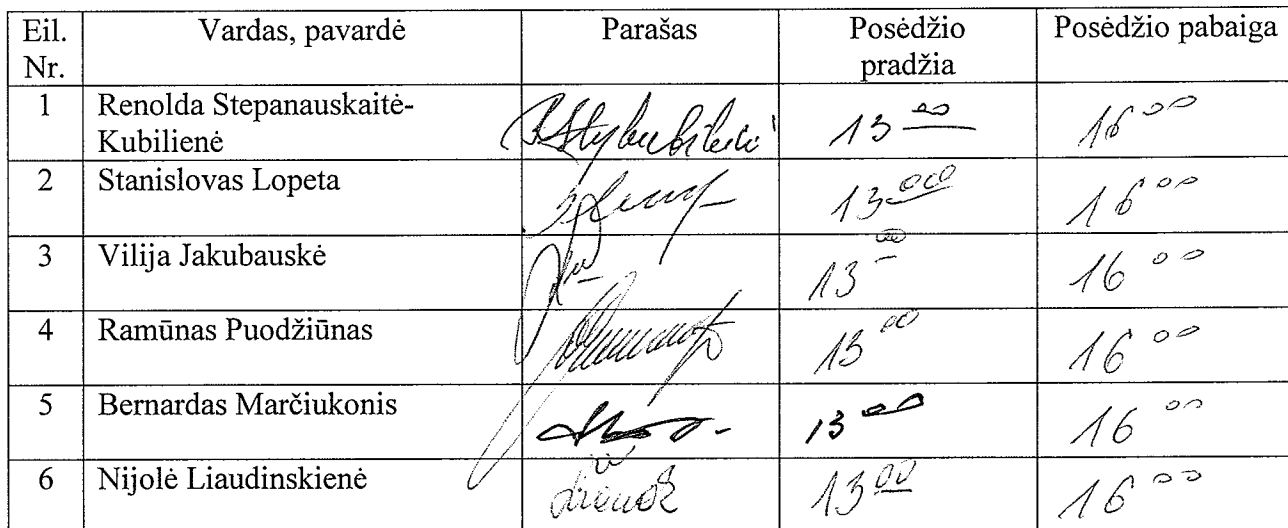 Eil. Nr. Vardas, pavardė Parašas Posėdžio pradžia Posėdžio pabaiga
1 Renolda Stepanauskaitė-Kubilienė 13 00 16 00
2 Stanislovas Lopeta 13 00 16 00
3 Vilija Jakubauskė 13 00 16 00
4 Ramūnas Puodžiūnas 13 00 16 00
5 Bernardas Marčiukonis 13 00 16 00
6 Nijolė Liaudinskienė 13 00 16 00